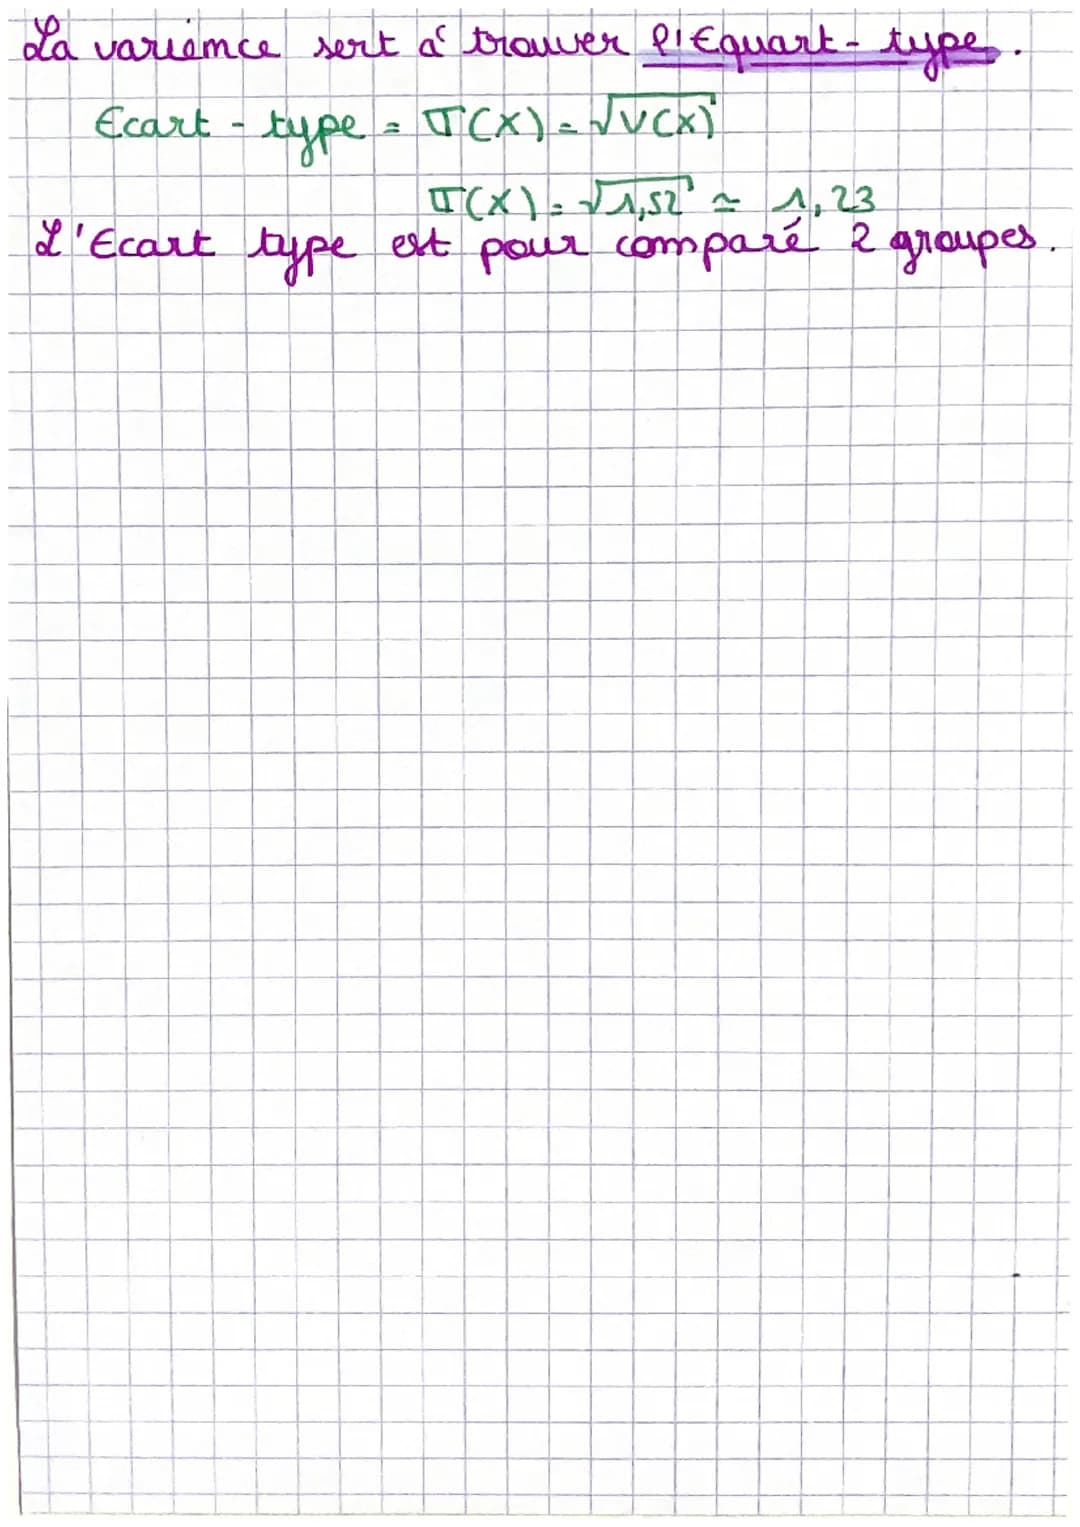 La variance sert à trouver l'Equart-type.
Ecart-type = σ(X) = √V(X)
σ(X) = √1,52 ≃ 1,23
L'Ecart type est pour comparé 2 groupes.